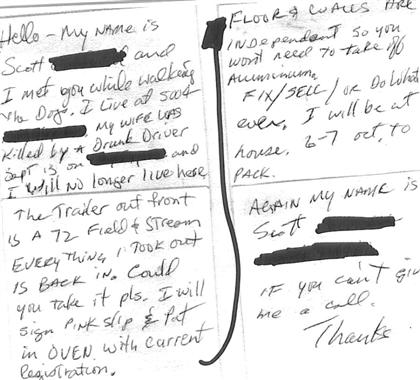 Hello - My NAME is
Scott and
I met you while walking
the Dogs. I Live at 5004
My wife was
killed by A Drunk Driver
Sept 13 on and
I will No longer live here
The Trailer out front
is A 72 Field & Stream
EVERYTHING I TOOK out
is BACK in. Could
you take it pls. I will
sign PiNK slip & Put
in OVEN with current
Registration.
FLOOR & WALLS ARE
INDependent so you
wont need to take off
Aluminum.
FIX/SELL/OR DO What
ever. I will be at
house. 6-7 oct, to
PACK.
AGAIN MY NAME is
Scott
if you can't give
me a call.
Thanks